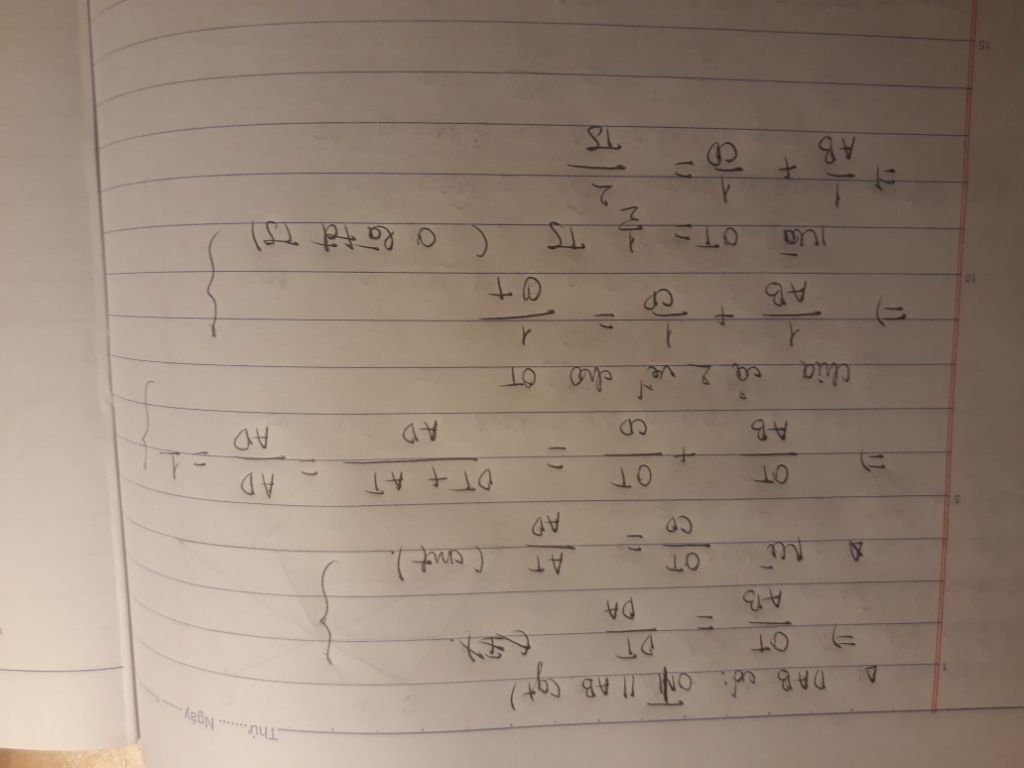 Thứ ........ Ngày ......
Δ DAB có: OT // AB (gt)
=> OT/AB = DT/DA
Δ
OT/CD = AT/AD (cmt).
=> OT/AB + OT/CD = DT + AT/AD = AD/AD = 1
chia cả 2 vế cho OT
=> 1/AB + 1/CD = 1/OT
Mà OT = 1/2 TS (O là tđ TS)
=> 1/AB + 1/CD = 2/TS
1
5
10
15